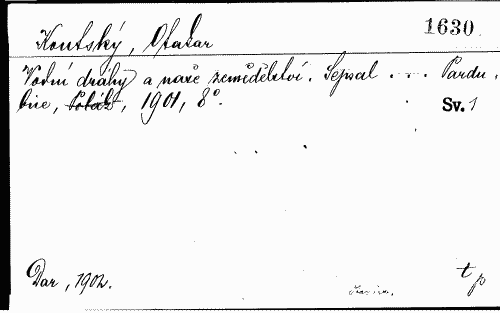 Koutský, Otakar
1630
Vodní dráhy a naše zemědělství. Sepsal . . . Pardu
bice, 1901, 8°.
Sv. 1
Dar, 1902.